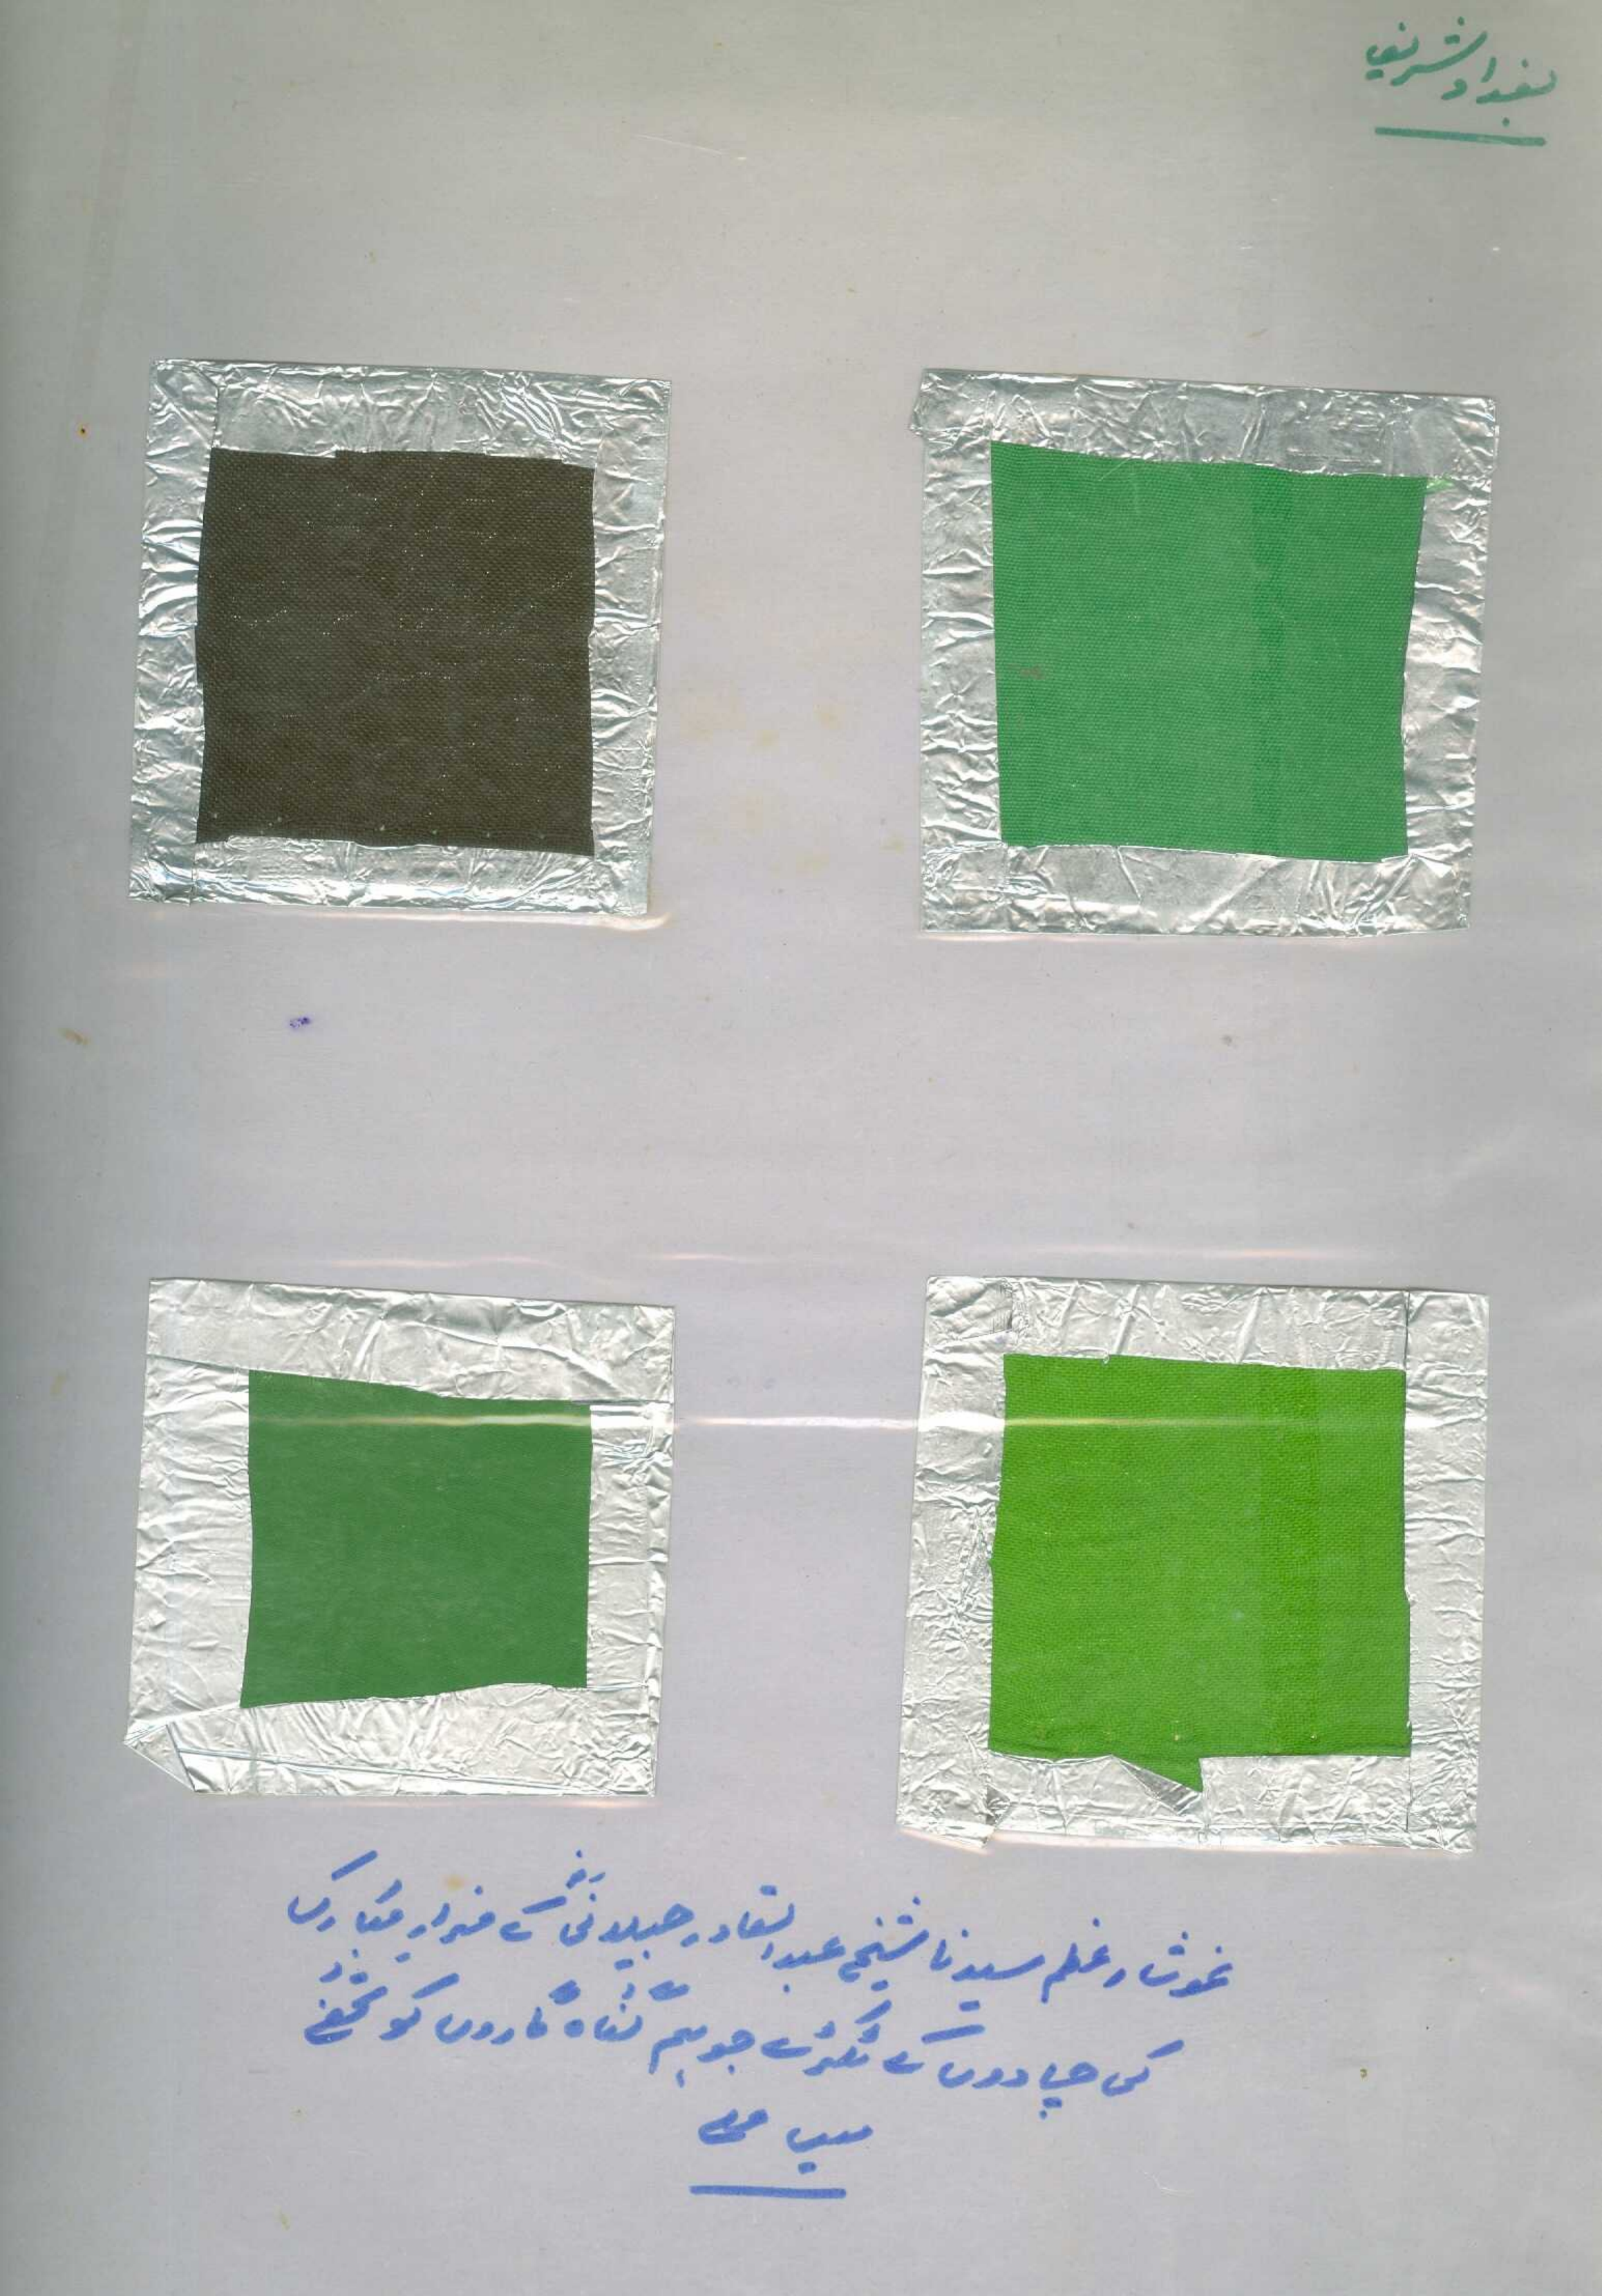 بغداد شریف
غوث اعظم سیدنا شیخ عبدالقادر جیلانیؓ کے مزار مبارک
کی چادروں کے ٹکڑے جو ہم گناہ گاروں کو تحفے
میں ملے